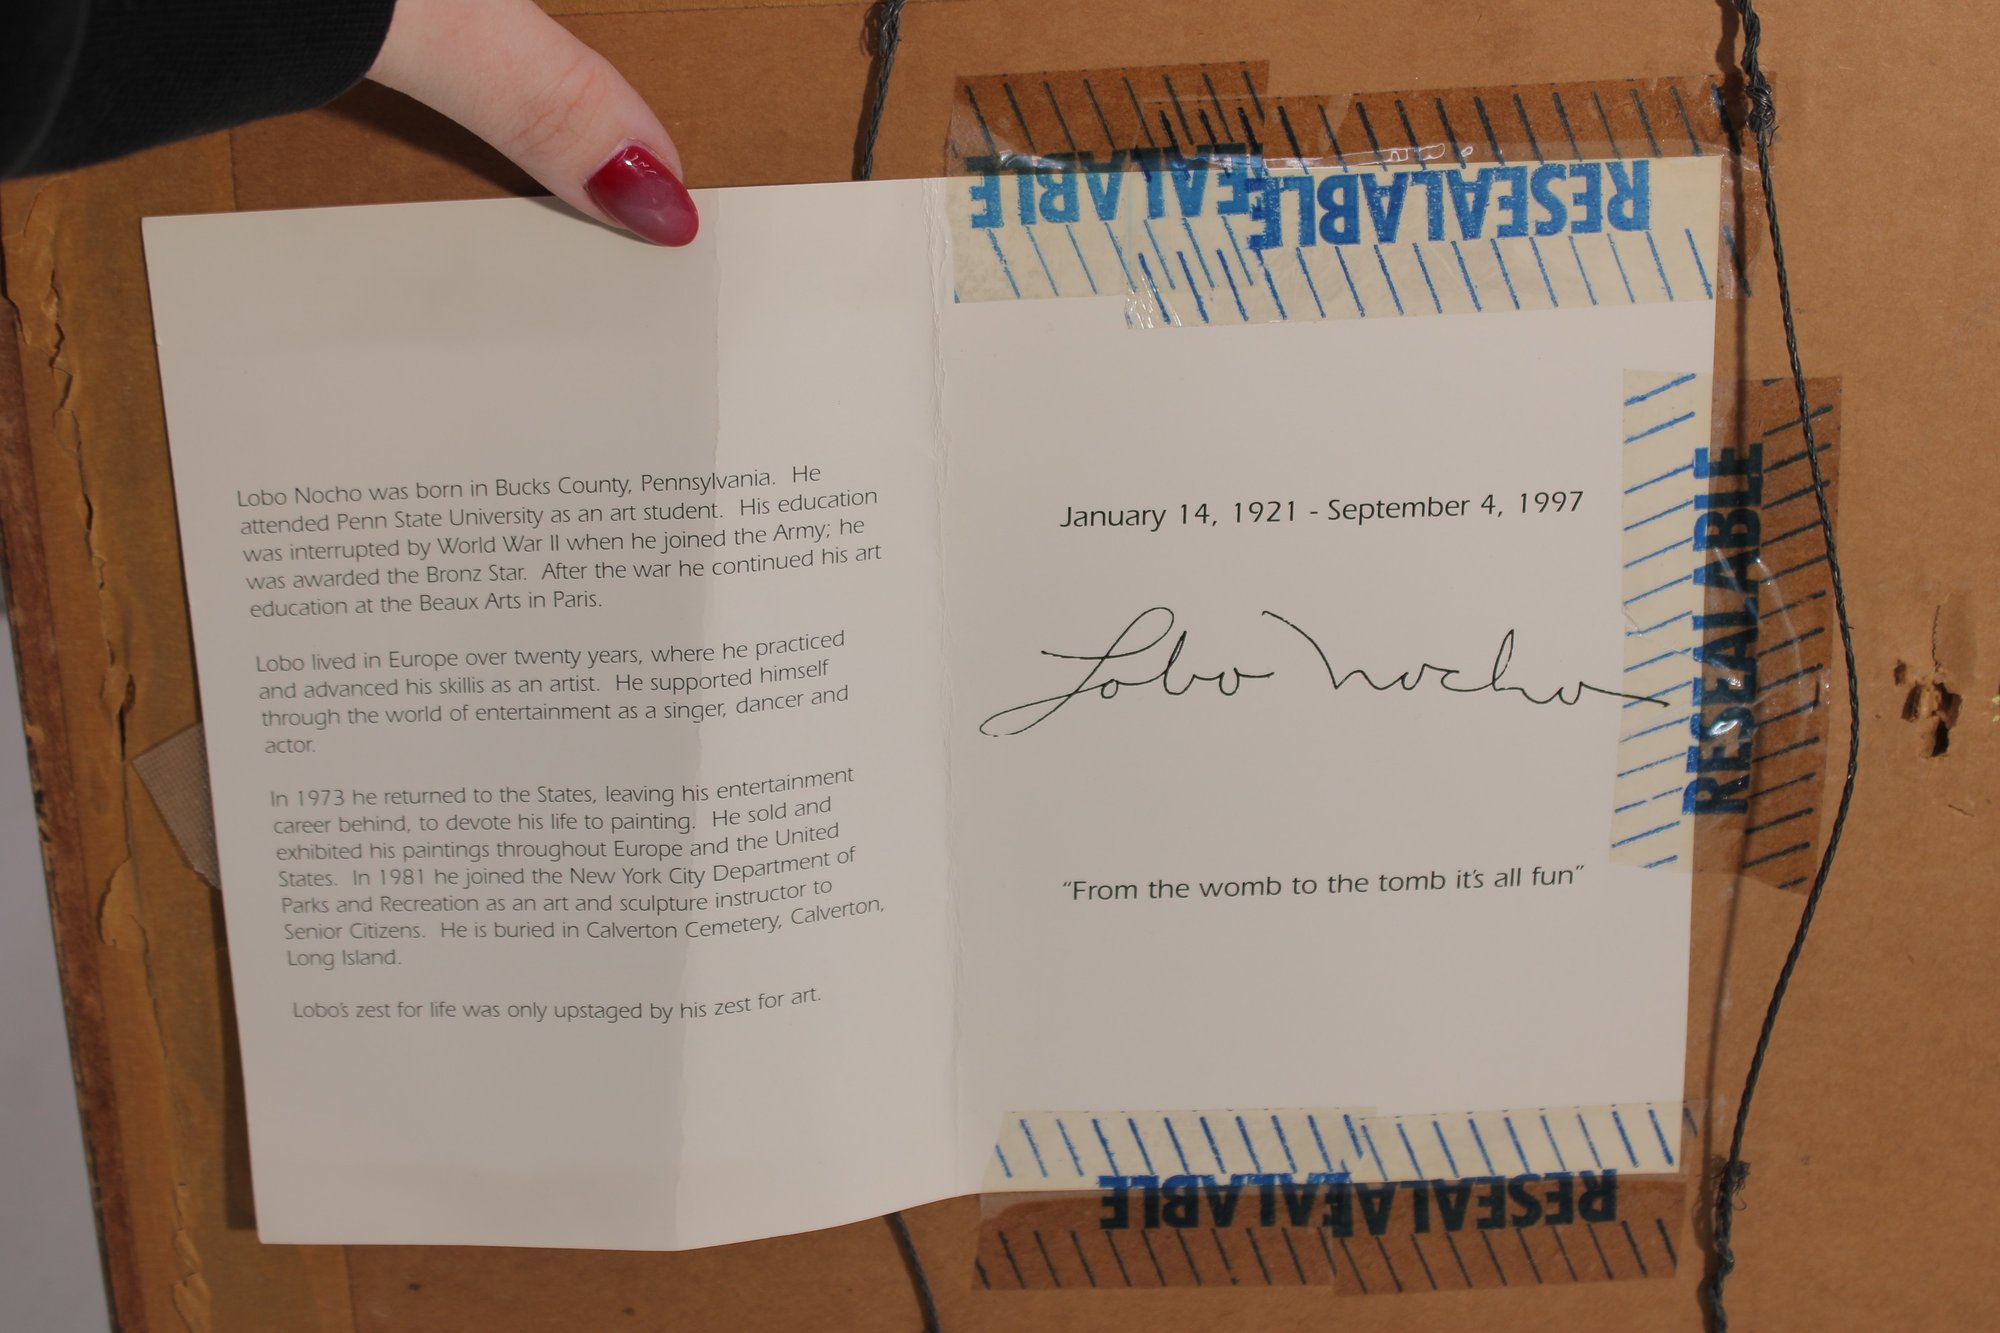 Lobo Nocho was born in Bucks County, Pennsylvania. He
attended Penn State University as an art student. His education
was interrupted by World War II when he joined the Army; he
was awarded the Bronz Star. After the war he continued his art
education at the Beaux Arts in Paris.
Lobo lived in Europe over twenty years, where he practiced
and advanced his skillis as an artist. He supported himself
through the world of entertainment as a singer, dancer and
actor.
In 1973 he returned to the States, leaving his entertainment
career behind, to devote his life to painting. He sold and
exhibited his paintings throughout Europe and the United
States. In 1981 he joined the New York City Department of
Parks and Recreation as an art and sculpture instructor to
Senior Citizens. He is buried in Calverton Cemetery, Calverton,
Long Island.
Lobo's zest for life was only upstaged by his zest for art.
RESEALABLE
EALABLE
January 14, 1921 - September 4, 1997
Lobo Nocho
"From the womb to the tomb it's all fun"
RESEALABLE
RESEALA
EALABLE